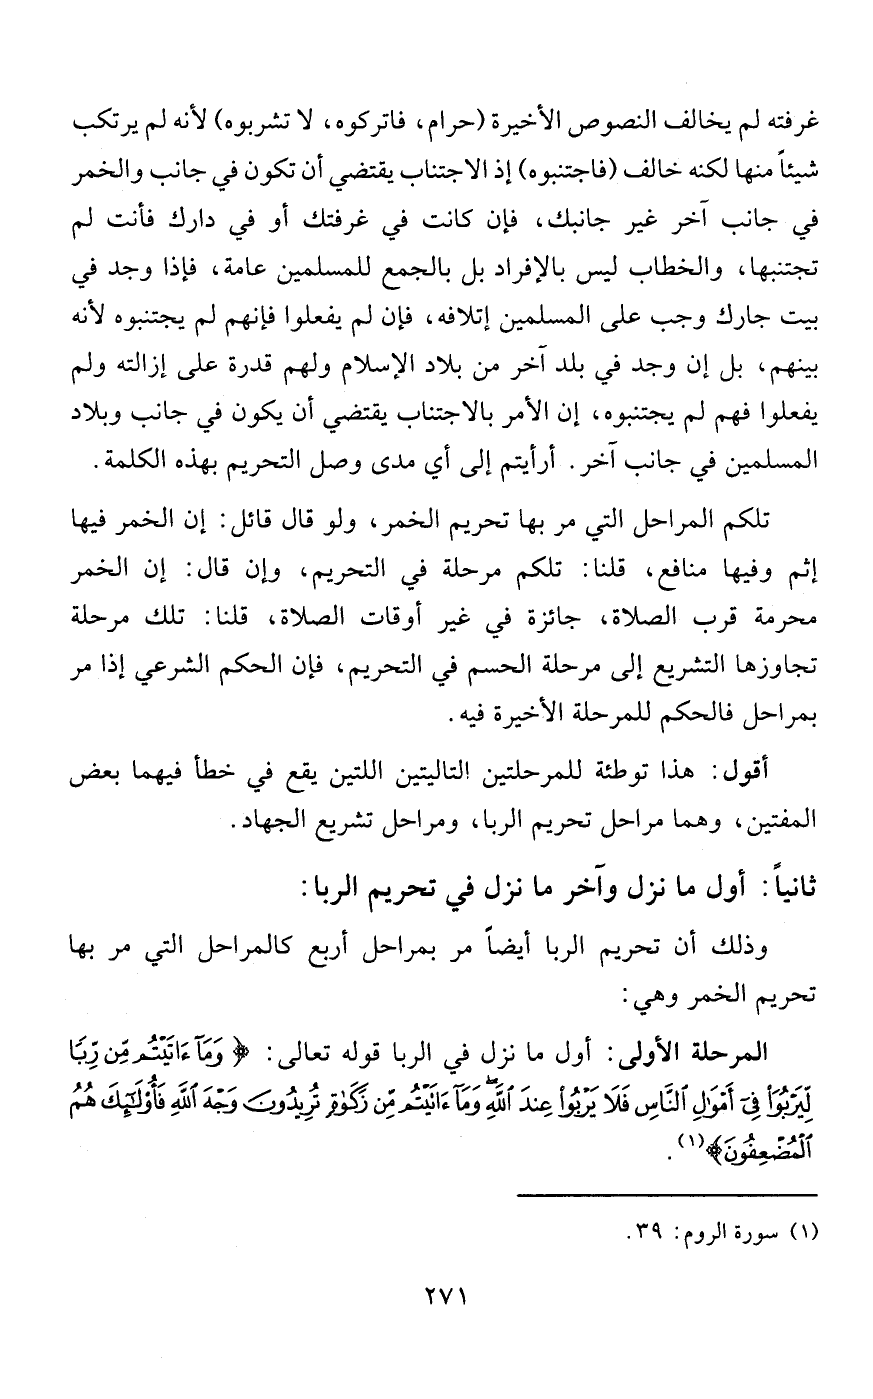 غرفته لم يخالف النصوص الأخيرة (حرام، فاتركوه، لا تشربوه) لأنه لم يرتكب
شيئاً منها لكنه خالف (فاجتنبوه) إذ الاجتناب يقتضي أن تكون في جانب والخمر
في جانب آخر غير جانبك، فإن كانت في غرفتك أو في دارك فأنت لم
تجتنبها، والخطاب ليس بالإفراد بل بالجمع للمسلمين عامة، فإذا وجد في
بيت جارك وجب على المسلمين إتلافه، فإن لم يفعلوا فإنهم لم يجتنبوه لأنه
بينهم، بل إن وجد في بلد آخر من بلاد الإسلام ولهم قدرة على إزالته ولم
يفعلوا فهم لم يجتنبوه، إن الأمر بالاجتناب يقتضي أن يكون في جانب وبلاد
المسلمين في جانب آخر. أرأيتم إلى أي مدى وصل التحريم بهذه الكلمة.
تلكم المراحل التي مر بها تحريم الخمر، ولو قال قائل: إن الخمر فيها
إثم وفيها منافع، قلنا: تلكم مرحلة في التحريم، وإن قال: إن الخمر
محرمة قرب الصلاة، جائزة في غير أوقات الصلاة، قلنا: تلك مرحلة
تجاوزها التشريع إلى مرحلة الحسم في التحريم، فإن الحكم الشرعي إذا مر
بمراحل فالحكم للمرحلة الأخيرة فيه.
أقول: هذا توطئة للمرحلتين التاليتين اللتين يقع في خطأ فيهما بعض
المفتين، وهما مراحل تحريم الربا، ومراحل تشريع الجهاد.
ثانياً: أول ما نزل وآخر ما نزل في تحريم الربا:
وذلك أن تحريم الربا أيضاً مر بمراحل أربع كالمراحل التي مر بها
تحريم الخمر وهي:
المرحلة الأولى: أول ما نزل في الربا قوله تعالى: ﴿وَمَآ ءَاتَيْتُم مِّن رِّبًا
لِّيَرْبُوَا۟ فِىٓ أَمْوَٰلِ ٱلنَّاسِ فَلَا يَرْبُوا۟ عِندَ ٱللَّهِ ۖ وَمَآ ءَاتَيْتُم مِّن زَكَوٰةٍ تُرِيدُونَ وَجْهَ ٱللَّهِ فَأُو۟لَـٰٓئِكَ هُمُ
ٱلْمُضْعِفُونَ﴾(١).
(١) سورة الروم: ٣٩.
٢٧١